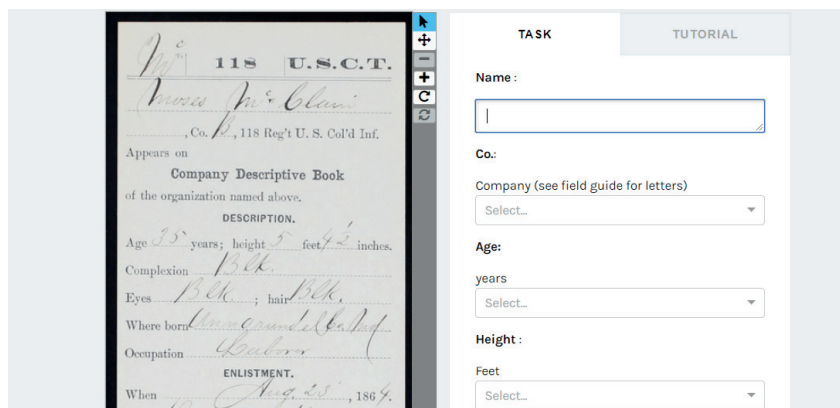 Mc 118 U.S.C.T.
Moses McClain
, Co. B, 118 Reg't U. S. Col'd Inf.
Appears on
Company Descriptive Book
of the organization named above.
DESCRIPTION.
Age 35 years; height 5 feet 4 1/2 inches.
Complexion Blk.
Eyes Blk. ; hair Blk.
Where born Annarundel Co Md
Occupation Laborer
ENLISTMENT.
When Aug. 25, 1864.
TASK
TUTORIAL
Name :
Co.:
Company (see field guide for letters)
Select...
Age:
years
Select...
Height :
Feet
Select...